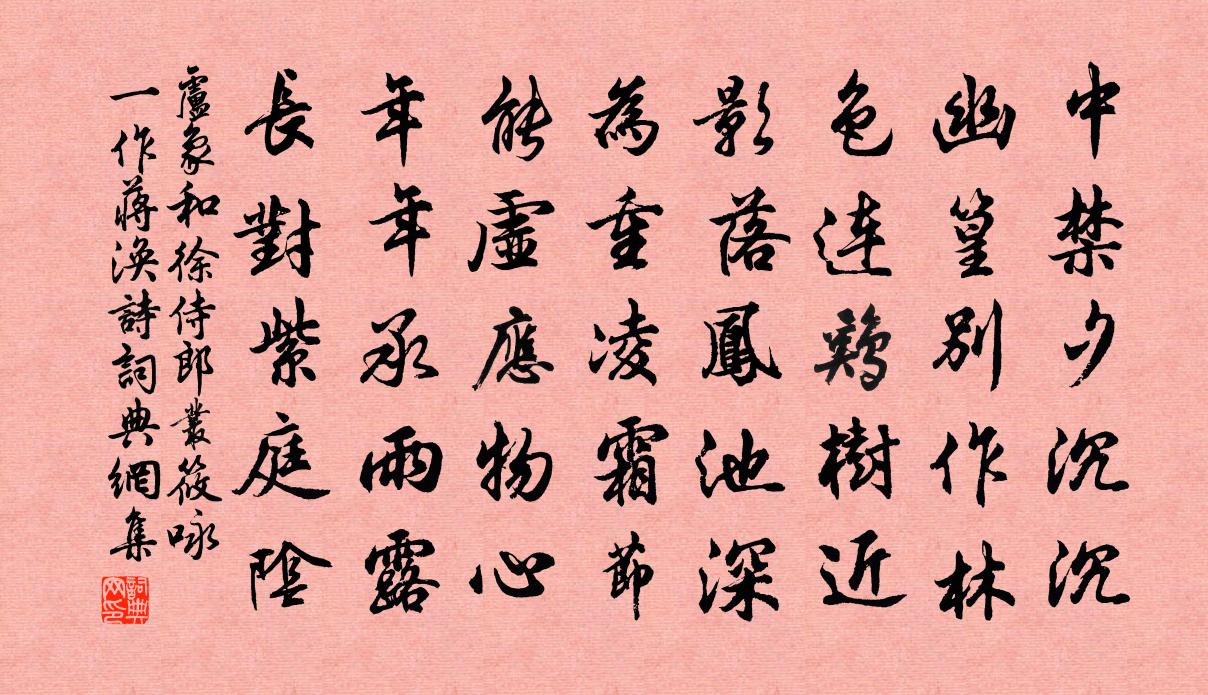 中禁夕沉沉
幽篁別作林
色連鷄樹近
影落鳳池深
為重凌霜節
能虛應物心
年年承雨露
長對紫庭陰
盧象和徐侍郎叢筱咏
一作蔣渙詩詞典網集
詞典网印